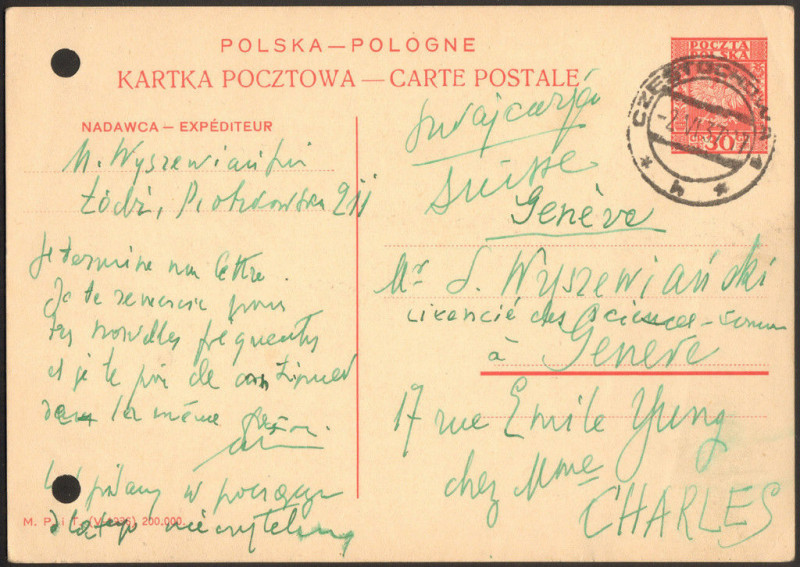 POLSKA — POLOGNE
KARTKA POCZTOWA — CARTE POSTALE
POCZTA
POLSKA
30
CZĘSTOCHOWA 1
NADAWCA — EXPÉDITEUR
M. Wyszewiański
Łódź, Piotrkowska 211
Je termine ma lettre.
Je te remercie pour
tes nouvelles frequentes
et je te prie de continuer
dans la même
pisany w pociągu
dlatego nieczytelny
M. P. i T. (V-1935) 200.000.
Szwajcarja
Suisse
Genève
Mr S. Wyszewiański
Licencié des Sciences -
à Genève
17 rue Emile Yung
chez Mme
CHARLES